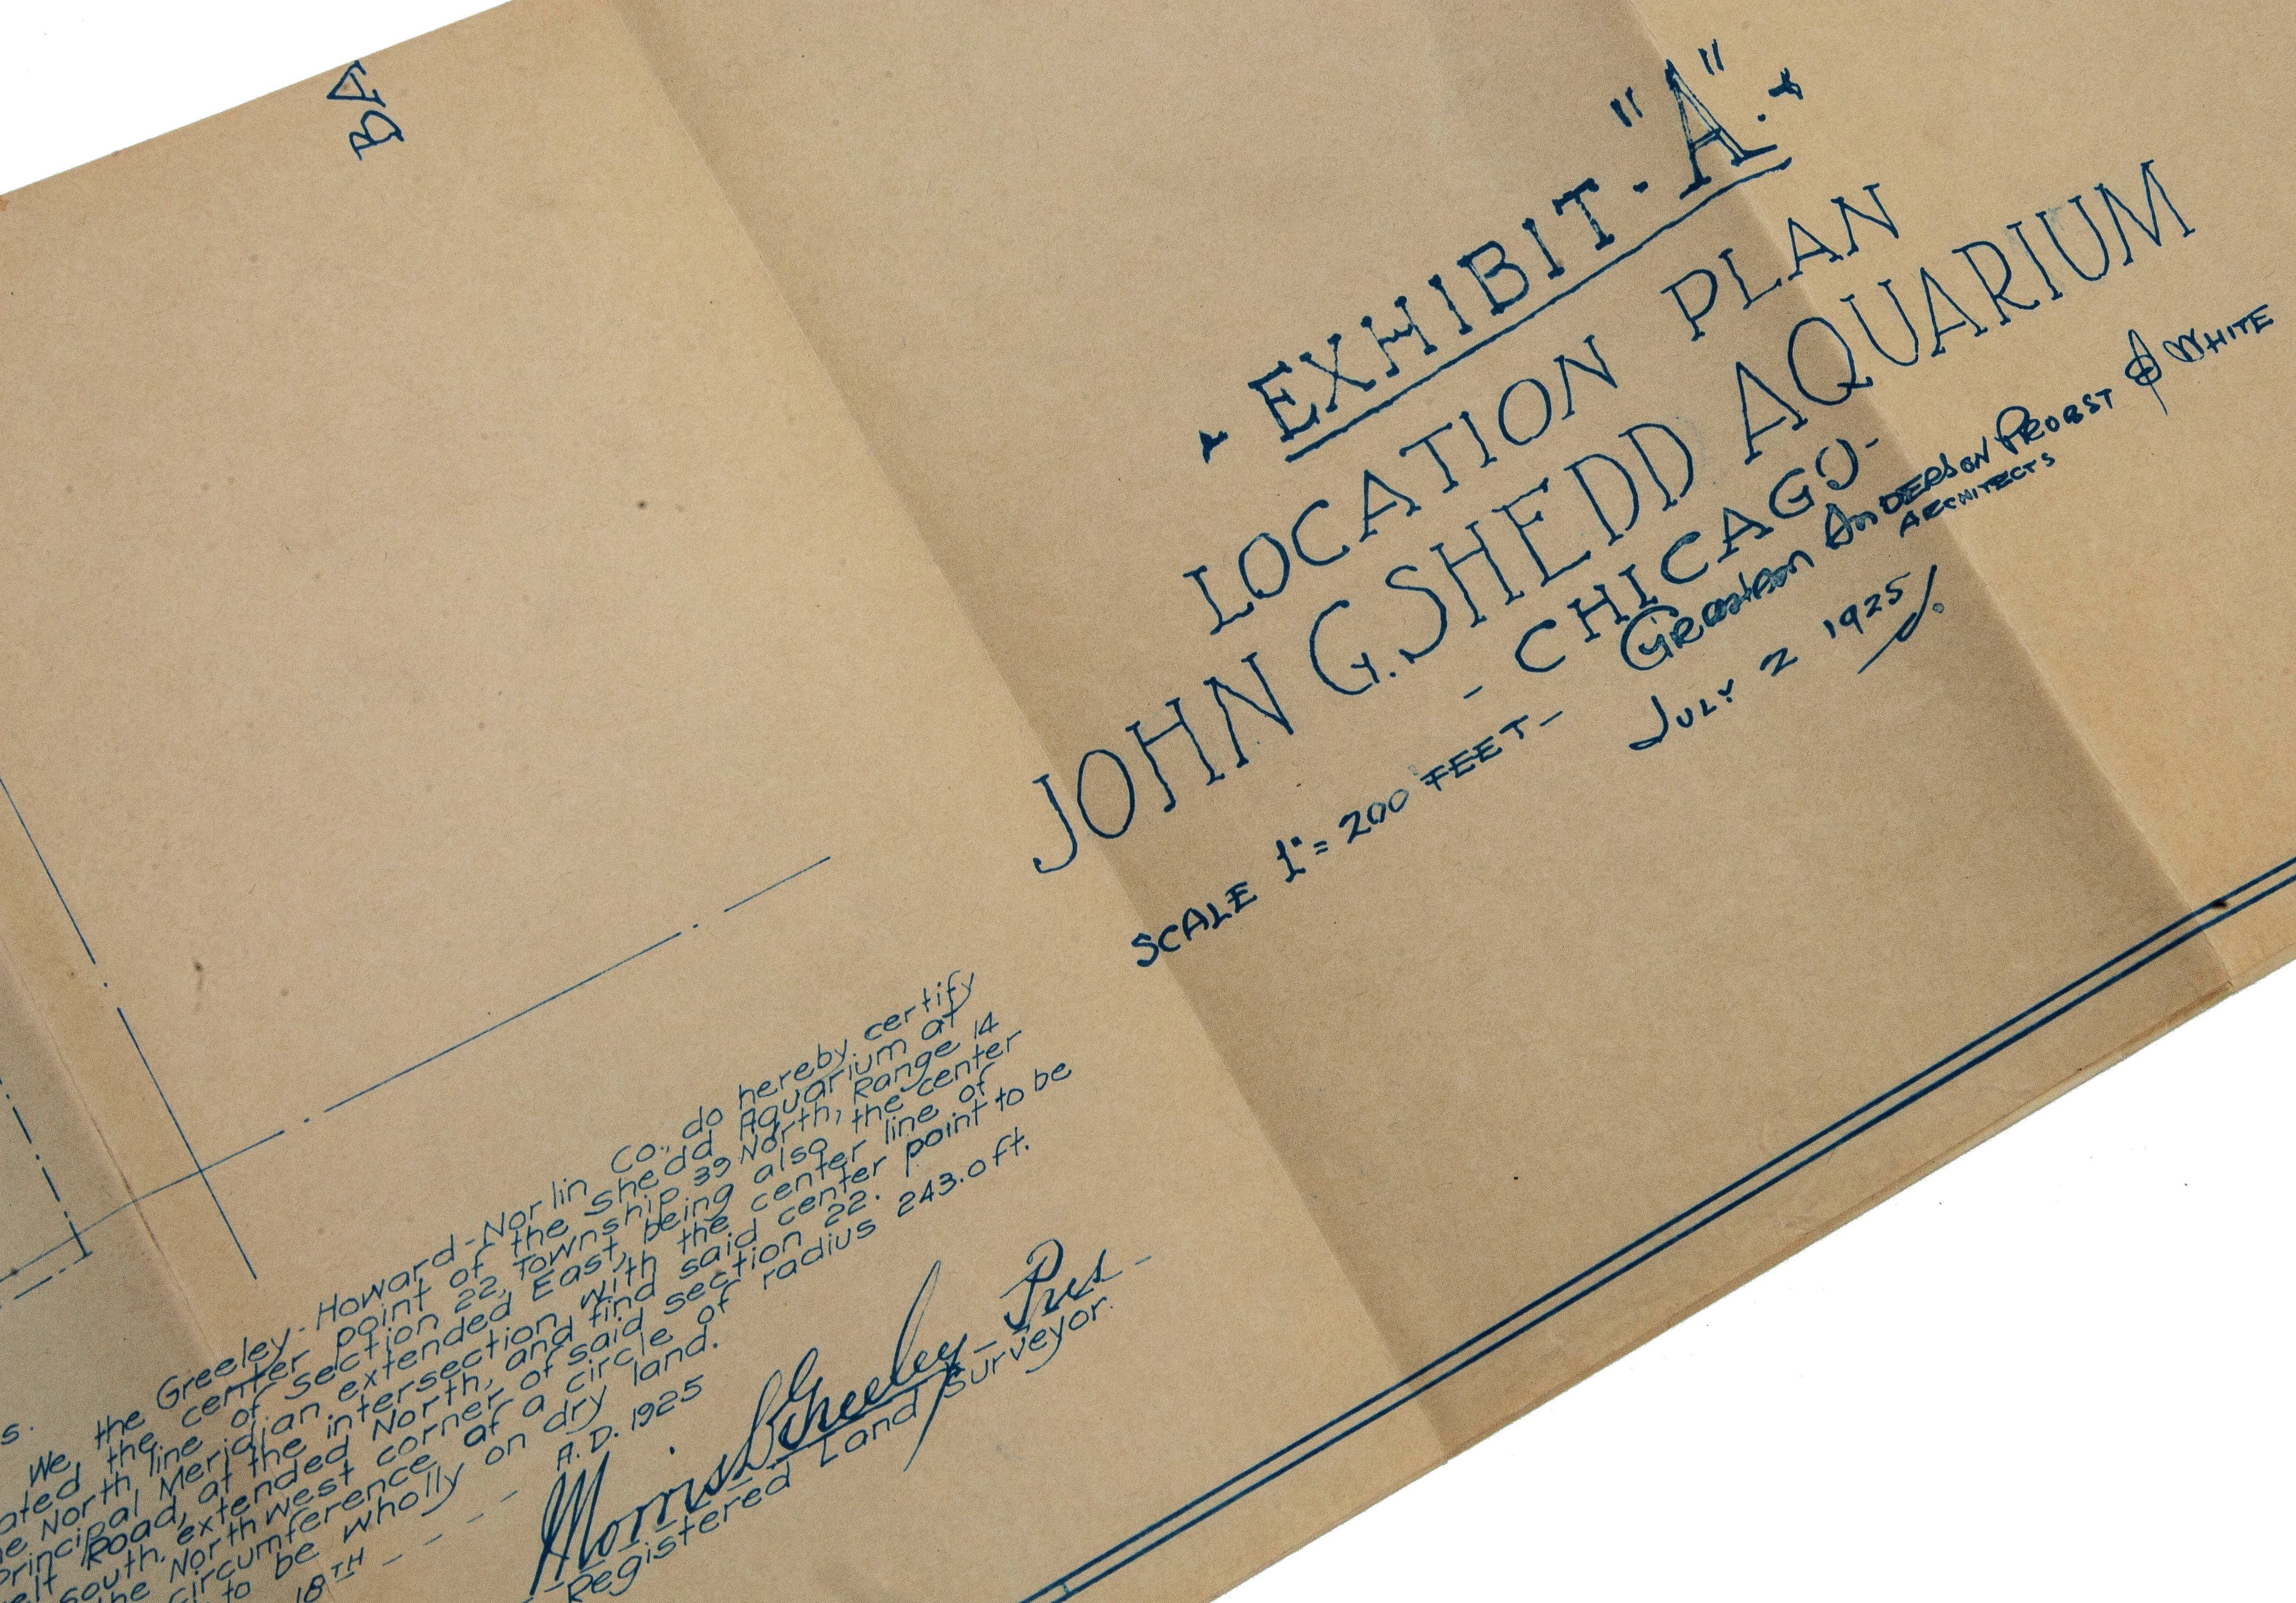 BA
- EXHIBIT. "A". -
LOCATION PLAN
JOHN G. SHEDD AQUARIUM
- CHICAGO -
SCALE 1" = 200 FEET - GRAHAM ANDERSON PROBST & WHITE
ARCHITECTS
JULY 2 1925
s.
We, the Greeley-Howard-Norlin Co., do hereby certify
ated the center point of the Shedd Aquarium at
e North line of Section 22, Township 39 North, Range 14
rincipal Meridian extended East, being also the center
elt Road, at the intersection with the center line of
south, extended North, and find said center point to be
he Northwest corner of said section 22.
circumference at a circle of radius 243.0 ft.
to be wholly on dry land.
18TH - - - - A.D. 1925
Morris L. Greeley - Pres -
Registered Land Surveyor.